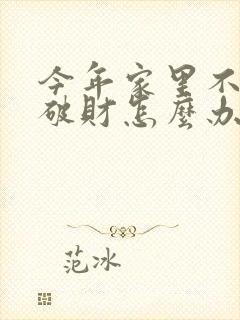 今年家里不
破財怎麼办
范冰